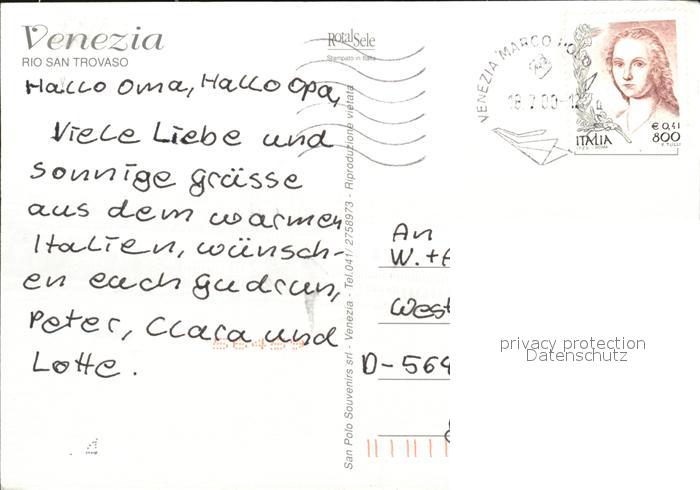 Venezia
RIO SAN TROVASO
RotalSele
Stampato in Italia
Hallo Oma, Hallo Opa,
Viele Liebe und
sonnige grüsse
aus dem warmen
Italien, wünsch-
en euch Gudrun,
Peter, Clara und
Lotte.
San Polo Souvenirs srl - Venezia - Tel.041/ 2758973 - Riproduzione vietata
VENEZIA MARCO PO
18.7.00-1
€ 0,41
800
ITALIA
An
W.+
West
D-564
privacy protection
Datenschutz